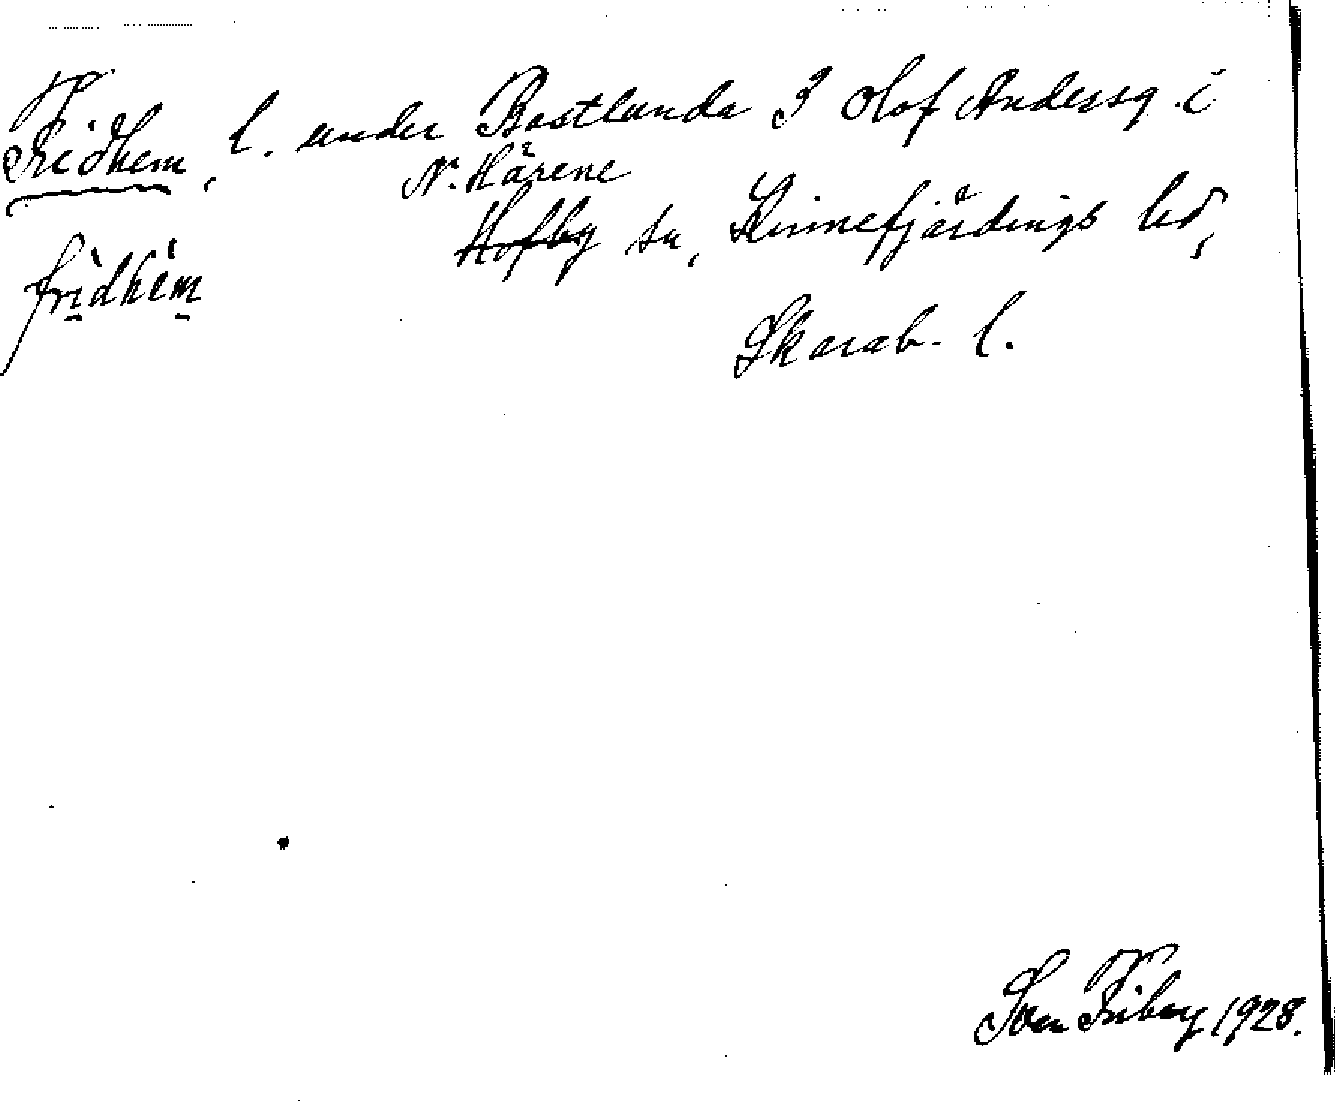 Fridhem, l. under Bostlunda 3 Olof Anderssg. i
N. Härene
Hofby sn, Kinnefjärdings hd,
fridhem
Skarab. l.
Sven Friberg 1928.